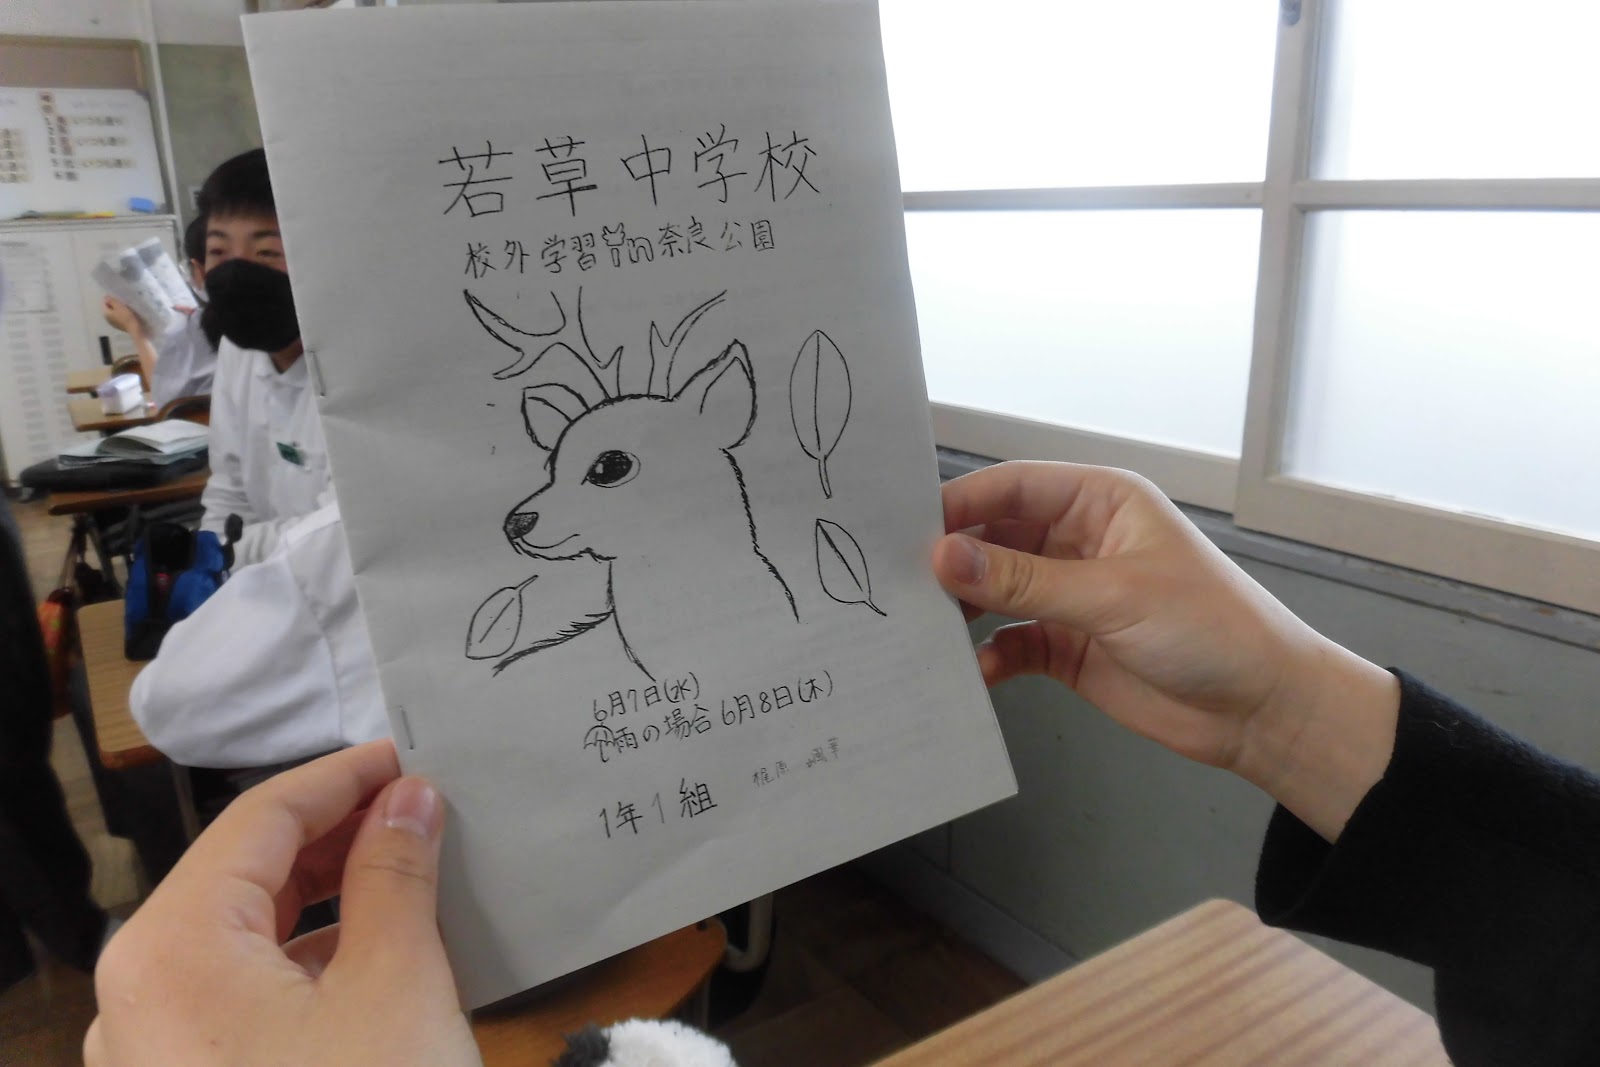 若草中学校
校外学習in奈良公園
6月7日(水)
雨の場合6月8日(木)
1年1組 梶原